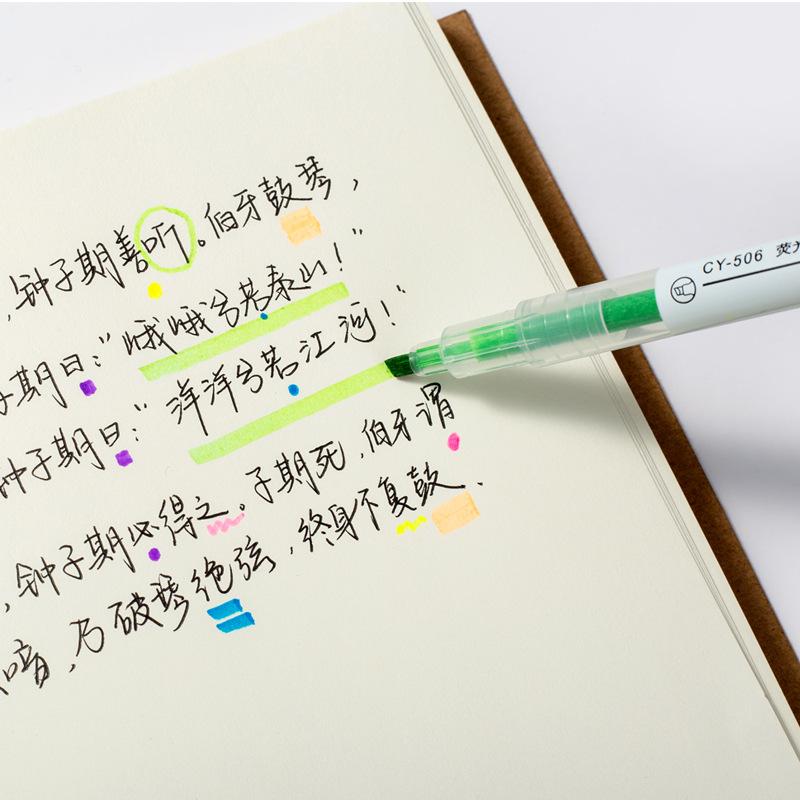 ,钟子期善听。伯牙鼓琴,
子期曰:“峨峨兮若泰山!”
钟子期曰:“洋洋兮若江河!”
,钟子期必得之。子期死,伯牙谓
音,乃破琴绝弦,终身不复鼓.
CY-506 荧光